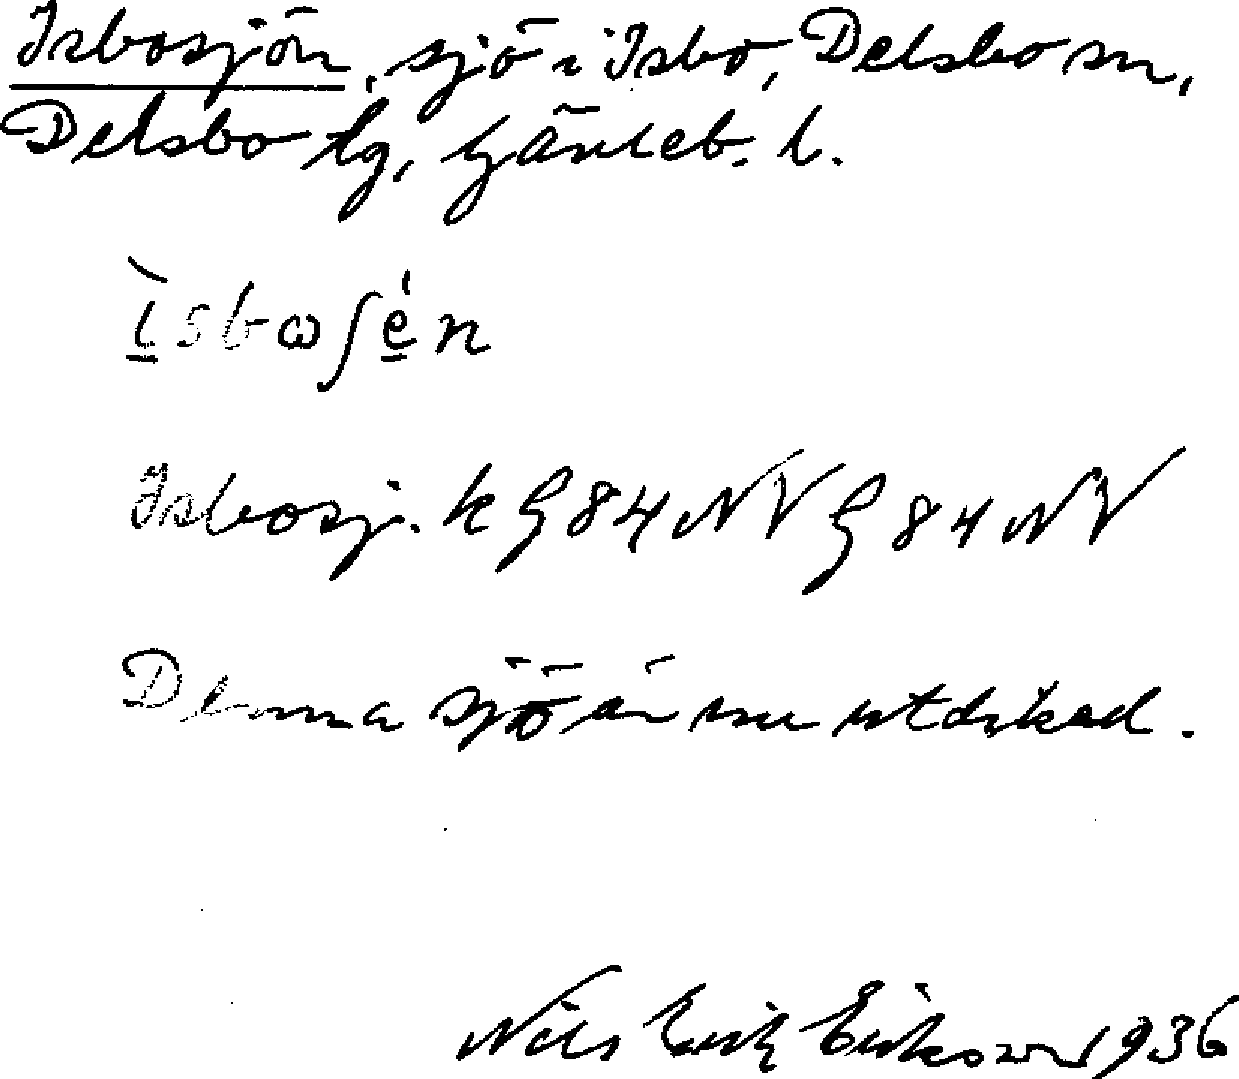 Isbosjön, sjö i Isbo, Delsbo sn,
Delsbo tg, Gävleb. l.
ìsbωʃén
Isbosj. k G 84 NV G 84 NV
Denna sjö är nu utdikad.
Nils Erik Eriksson 1936